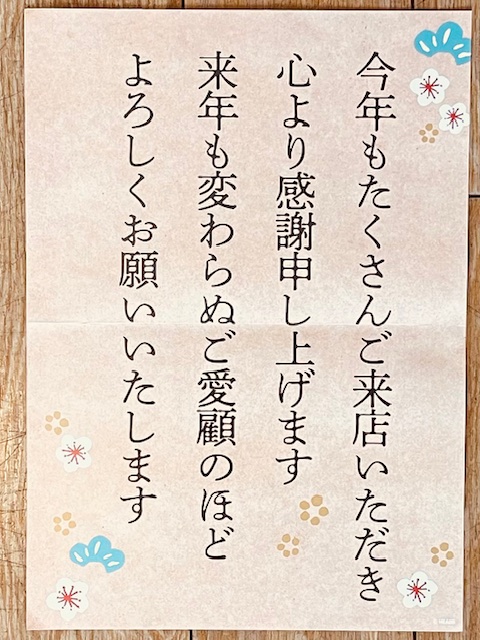 今年もたくさんご来店いただき
心より感謝申し上げます
来年も変わらぬご愛顧のほど
よろしくお願いいたします